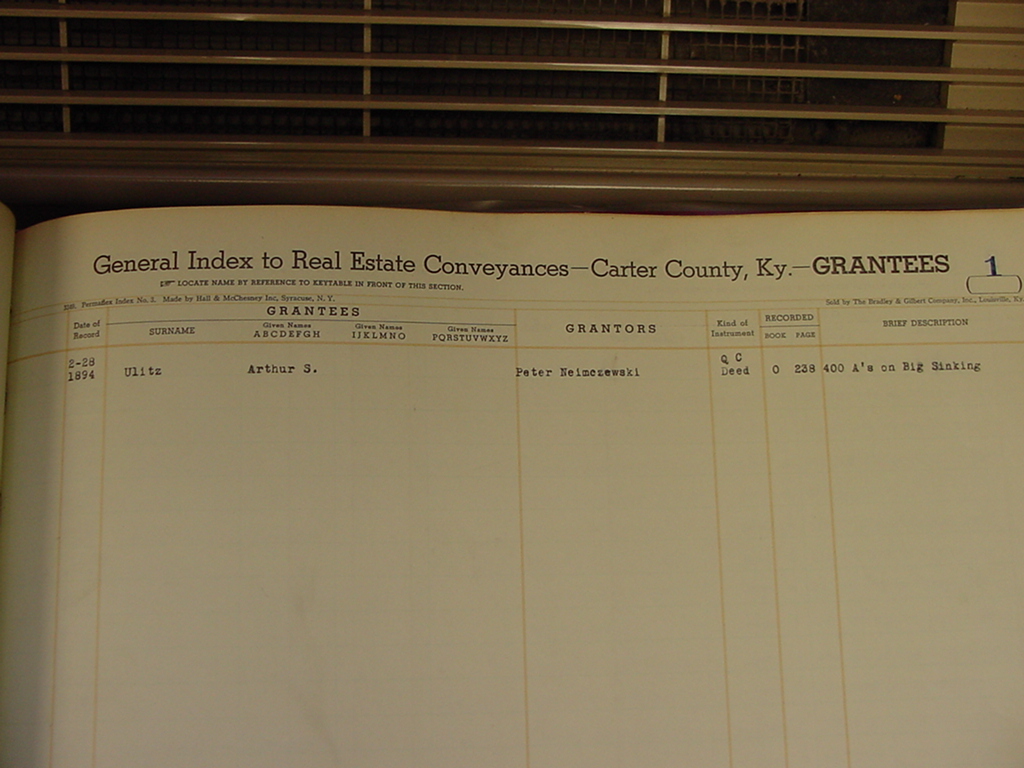 General Index to Real Estate Conveyances—Carter County, Ky.—GRANTEES 1
LOCATE NAME BY REFERENCE TO KEYTABLE IN FRONT OF THIS SECTION.
Permaflex Index No. 2. Made by Hall & McChesney Inc, Syracuse, N. Y. Sold by The Bradley & Gilbert Company, Inc., Louisville, Ky.
Date of Record GRANTEES GRANTORS Kind of Instrument RECORDED BRIEF DESCRIPTION
SURNAME Given Names ABCDEFGH Given Names IJKLMNO Given Names PQRSTUVWXYZ BOOK PAGE
2-28 Q C
1894 Ulitz Arthur S. Peter Neimczewski Deed O 238 400 A's on Big Sinking